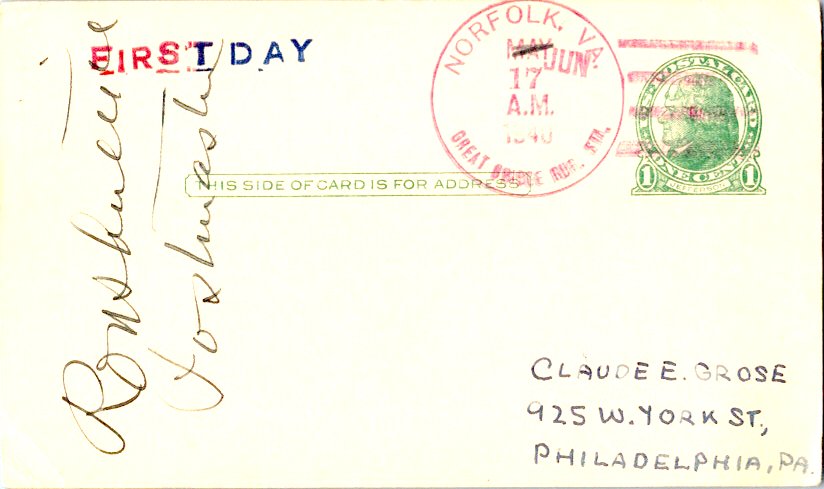 FIRST DAY
NORFOLK, VA.
MAY JUN
17
A.M.
1940
GREAT BRIDGE RUR. STA.
THIS SIDE OF CARD IS FOR ADDRESS
1 JEFFERSON 1
Postmaster
CLAUDE E. GROSE
925 W. YORK ST.,
PHILADELPHIA, PA.